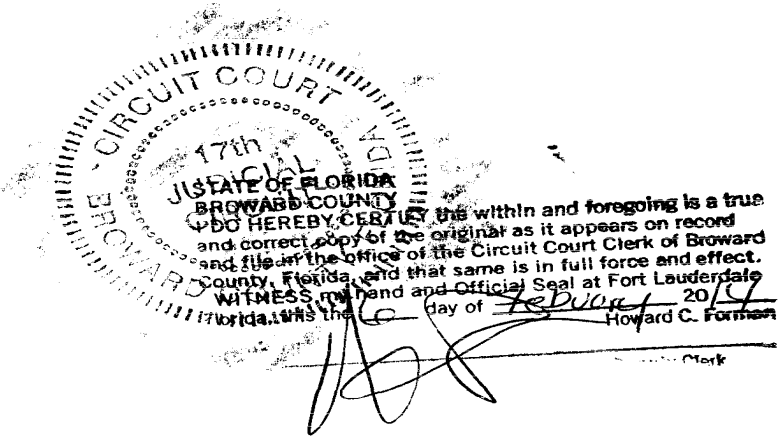 CIRCUIT COURT
BROWARD
17th
JUDICIAL
STATE OF FLORIDA
BROWARD COUNTY
I DO HEREBY CERTIFY the within and foregoing is a true
and correct copy of the original as it appears on record
and file in the office of the Circuit Court Clerk of Broward
County, Florida, and that same is in full force and effect.
WITNESS my hand and Official Seal at Fort Lauderdale
Florida, this the day of Febuary 2014
Howard C. Forman
Clerk